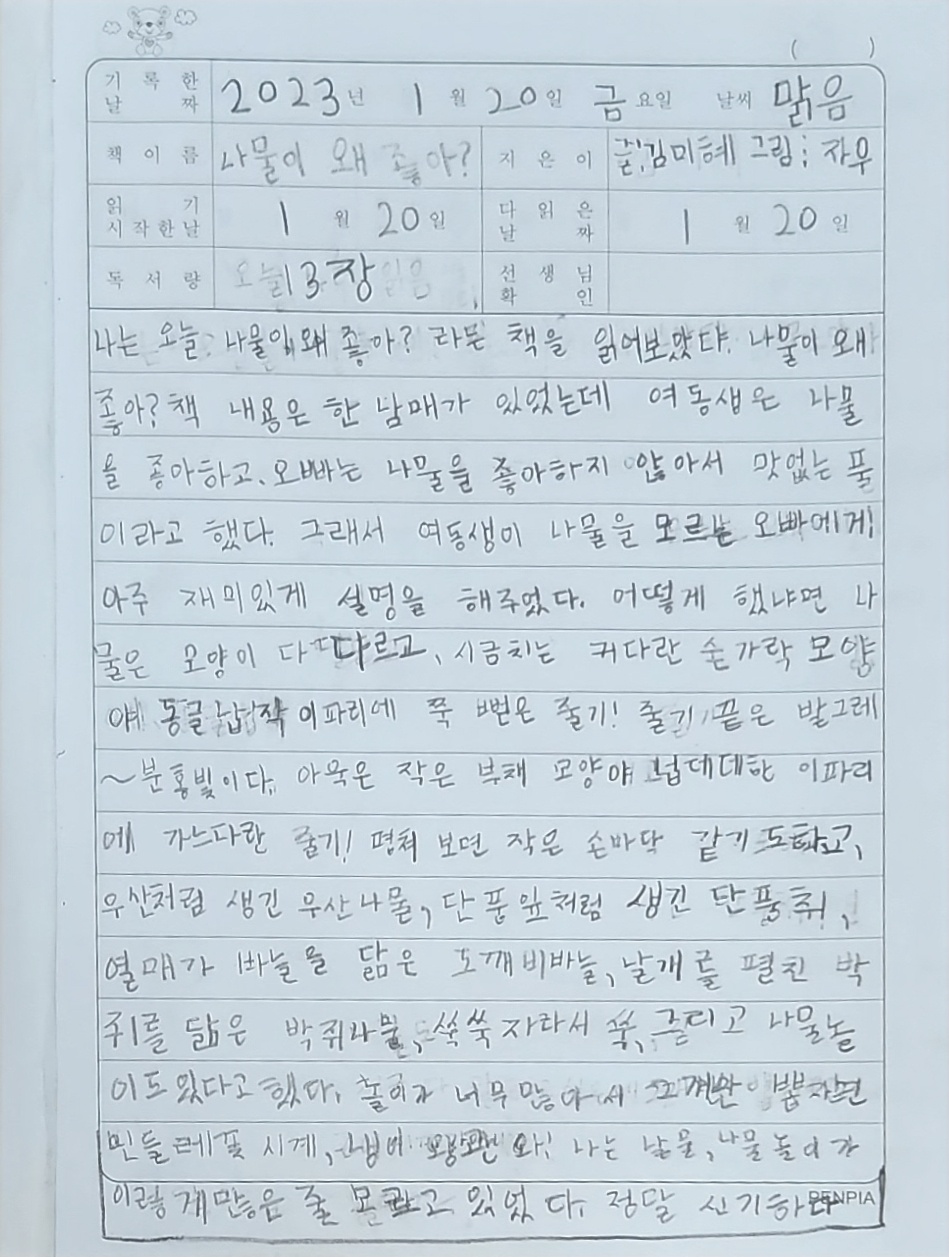 ( )
기록한 날짜 2023년 1월 20일 금요일 날씨 맑음
책이름 나물이 왜 좋아? 지은이 글:김미혜 그림:자우
읽기 시작한날 1월 20일 다 읽은 날짜 1월 20일
독서량 오늘 13장 읽음 선생님 확인
나는 오늘 나물이 왜 좋아? 라는 책을 읽어보았다. 나물이 왜
좋아? 책 내용은 한 남매가 있었는데 여동생은 나물
을 좋아하고, 오빠는 나물을 좋아하지 않아서 맛없는 풀
이라고 했다. 그래서 여동생이 나물을 모르는 오빠에게
아주 재미있게 설명을 해주었다. 어떻게 했냐면 나
물은 모양이 다 다르고, 시금치는 커다란 숟가락 모양
야 동글납작 이파리에 쭉 뻗은 줄기! 줄기 끝은 발그레
~분홍빛이다. 아욱은 작은 부채 모양야 넙데데한 이파리
에 가느다란 줄기! 펼쳐 보면 작은 손바닥 같기도하고,
우산처럼 생긴 우산나물, 단풍잎처럼 생긴 단풍취,
열매가 바늘을 닮은 도깨비바늘, 날개를 펼친 박
쥐를 닮은 박쥐나물, 쑥쑥 자라서 쑥, 그리고 나물놀
이도 있다고 했다. 놀이가 너무 많아서 몇개만 뽑자면
민들레꽃 시계, 냉이 와! 나는 나물, 나물놀이가
이렇게 많은 줄 모르고 있었다. 정말 신기하다
PENPIA